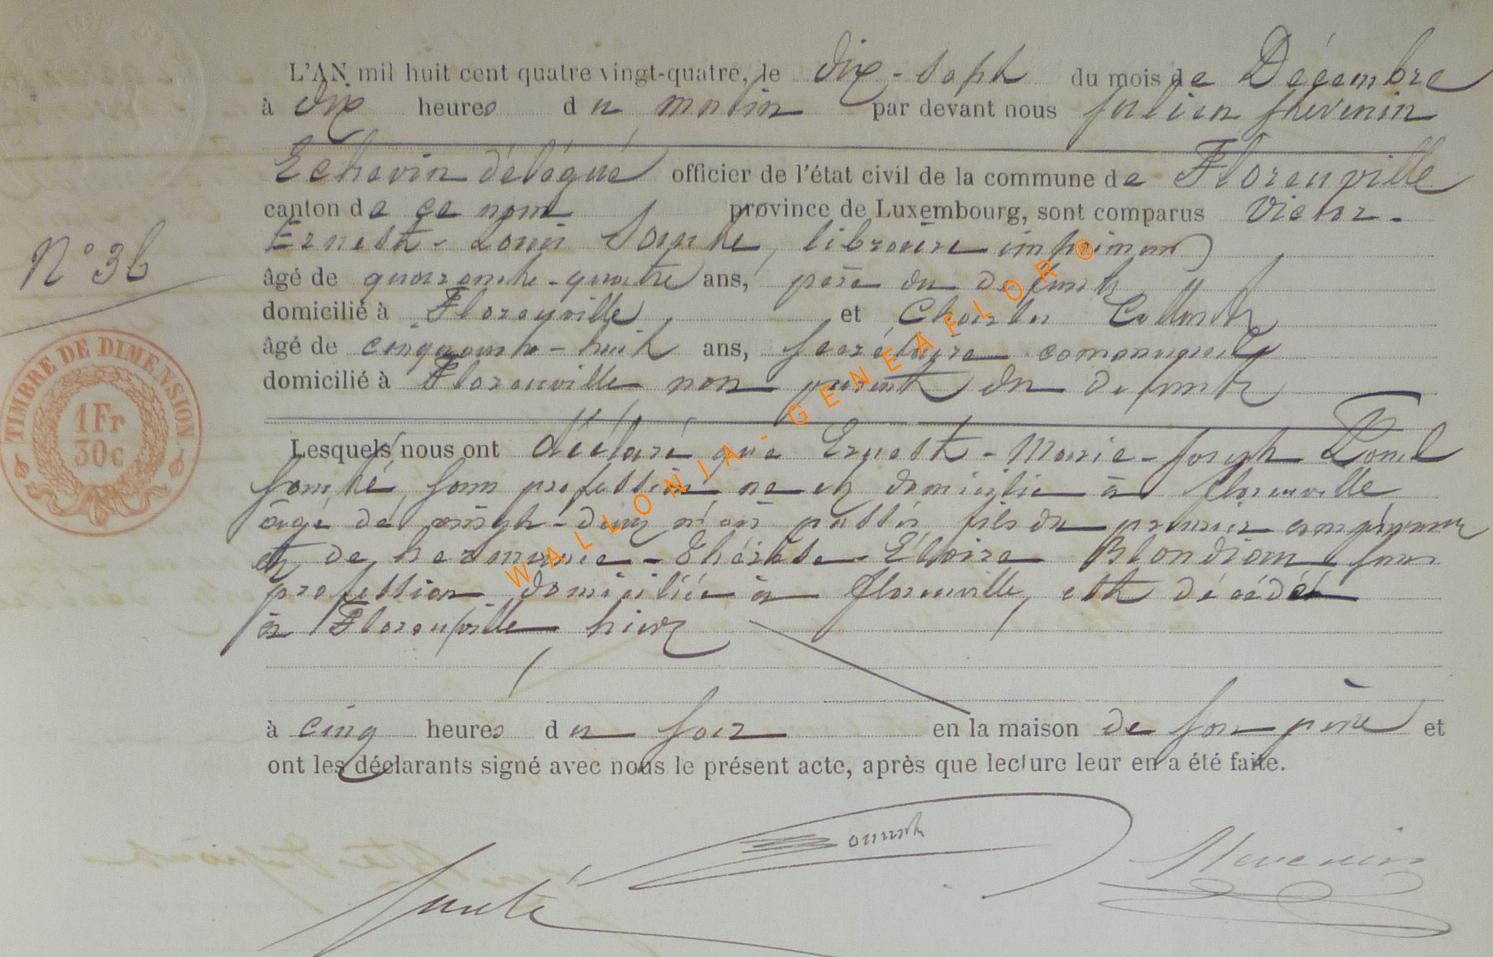 L'AN mil huit cent quatre vingt-quatre, le dix-sept du mois de Décembre
à dix heures du matin par devant nous Julien Thévenin
Echevin délégué officier de l'état civil de la commune de Florenville
canton de ce nom province de Luxembourg, sont comparus Victor-
Ernest-Louis libraire imprimeur
N° 36
âgé de quarante-quatre ans, père du defunt
domicilié à Florenville et Charles
âgé de cinquante-huit ans, secrétaire communal
domicilié à Florenville non parent du defunt
TIMBRE DE DIMENSION
1Fr
30c
Lesquels nous ont déclaré que Ernest-Marie-Joseph
sans profession né et domicilié à Florenville
âgé de vingt-deux passés fils du premier comparant
et de hermine-Thérèse- sans
profession domiciliée à Florenville, est décédé
à Florenville hier
à cinq heures du soir en la maison de son père et
ont les déclarants signé avec nous le présent acte, après que lecture leur en a été faite.
Thevenin
WALLONIA-GENEAFLOR©